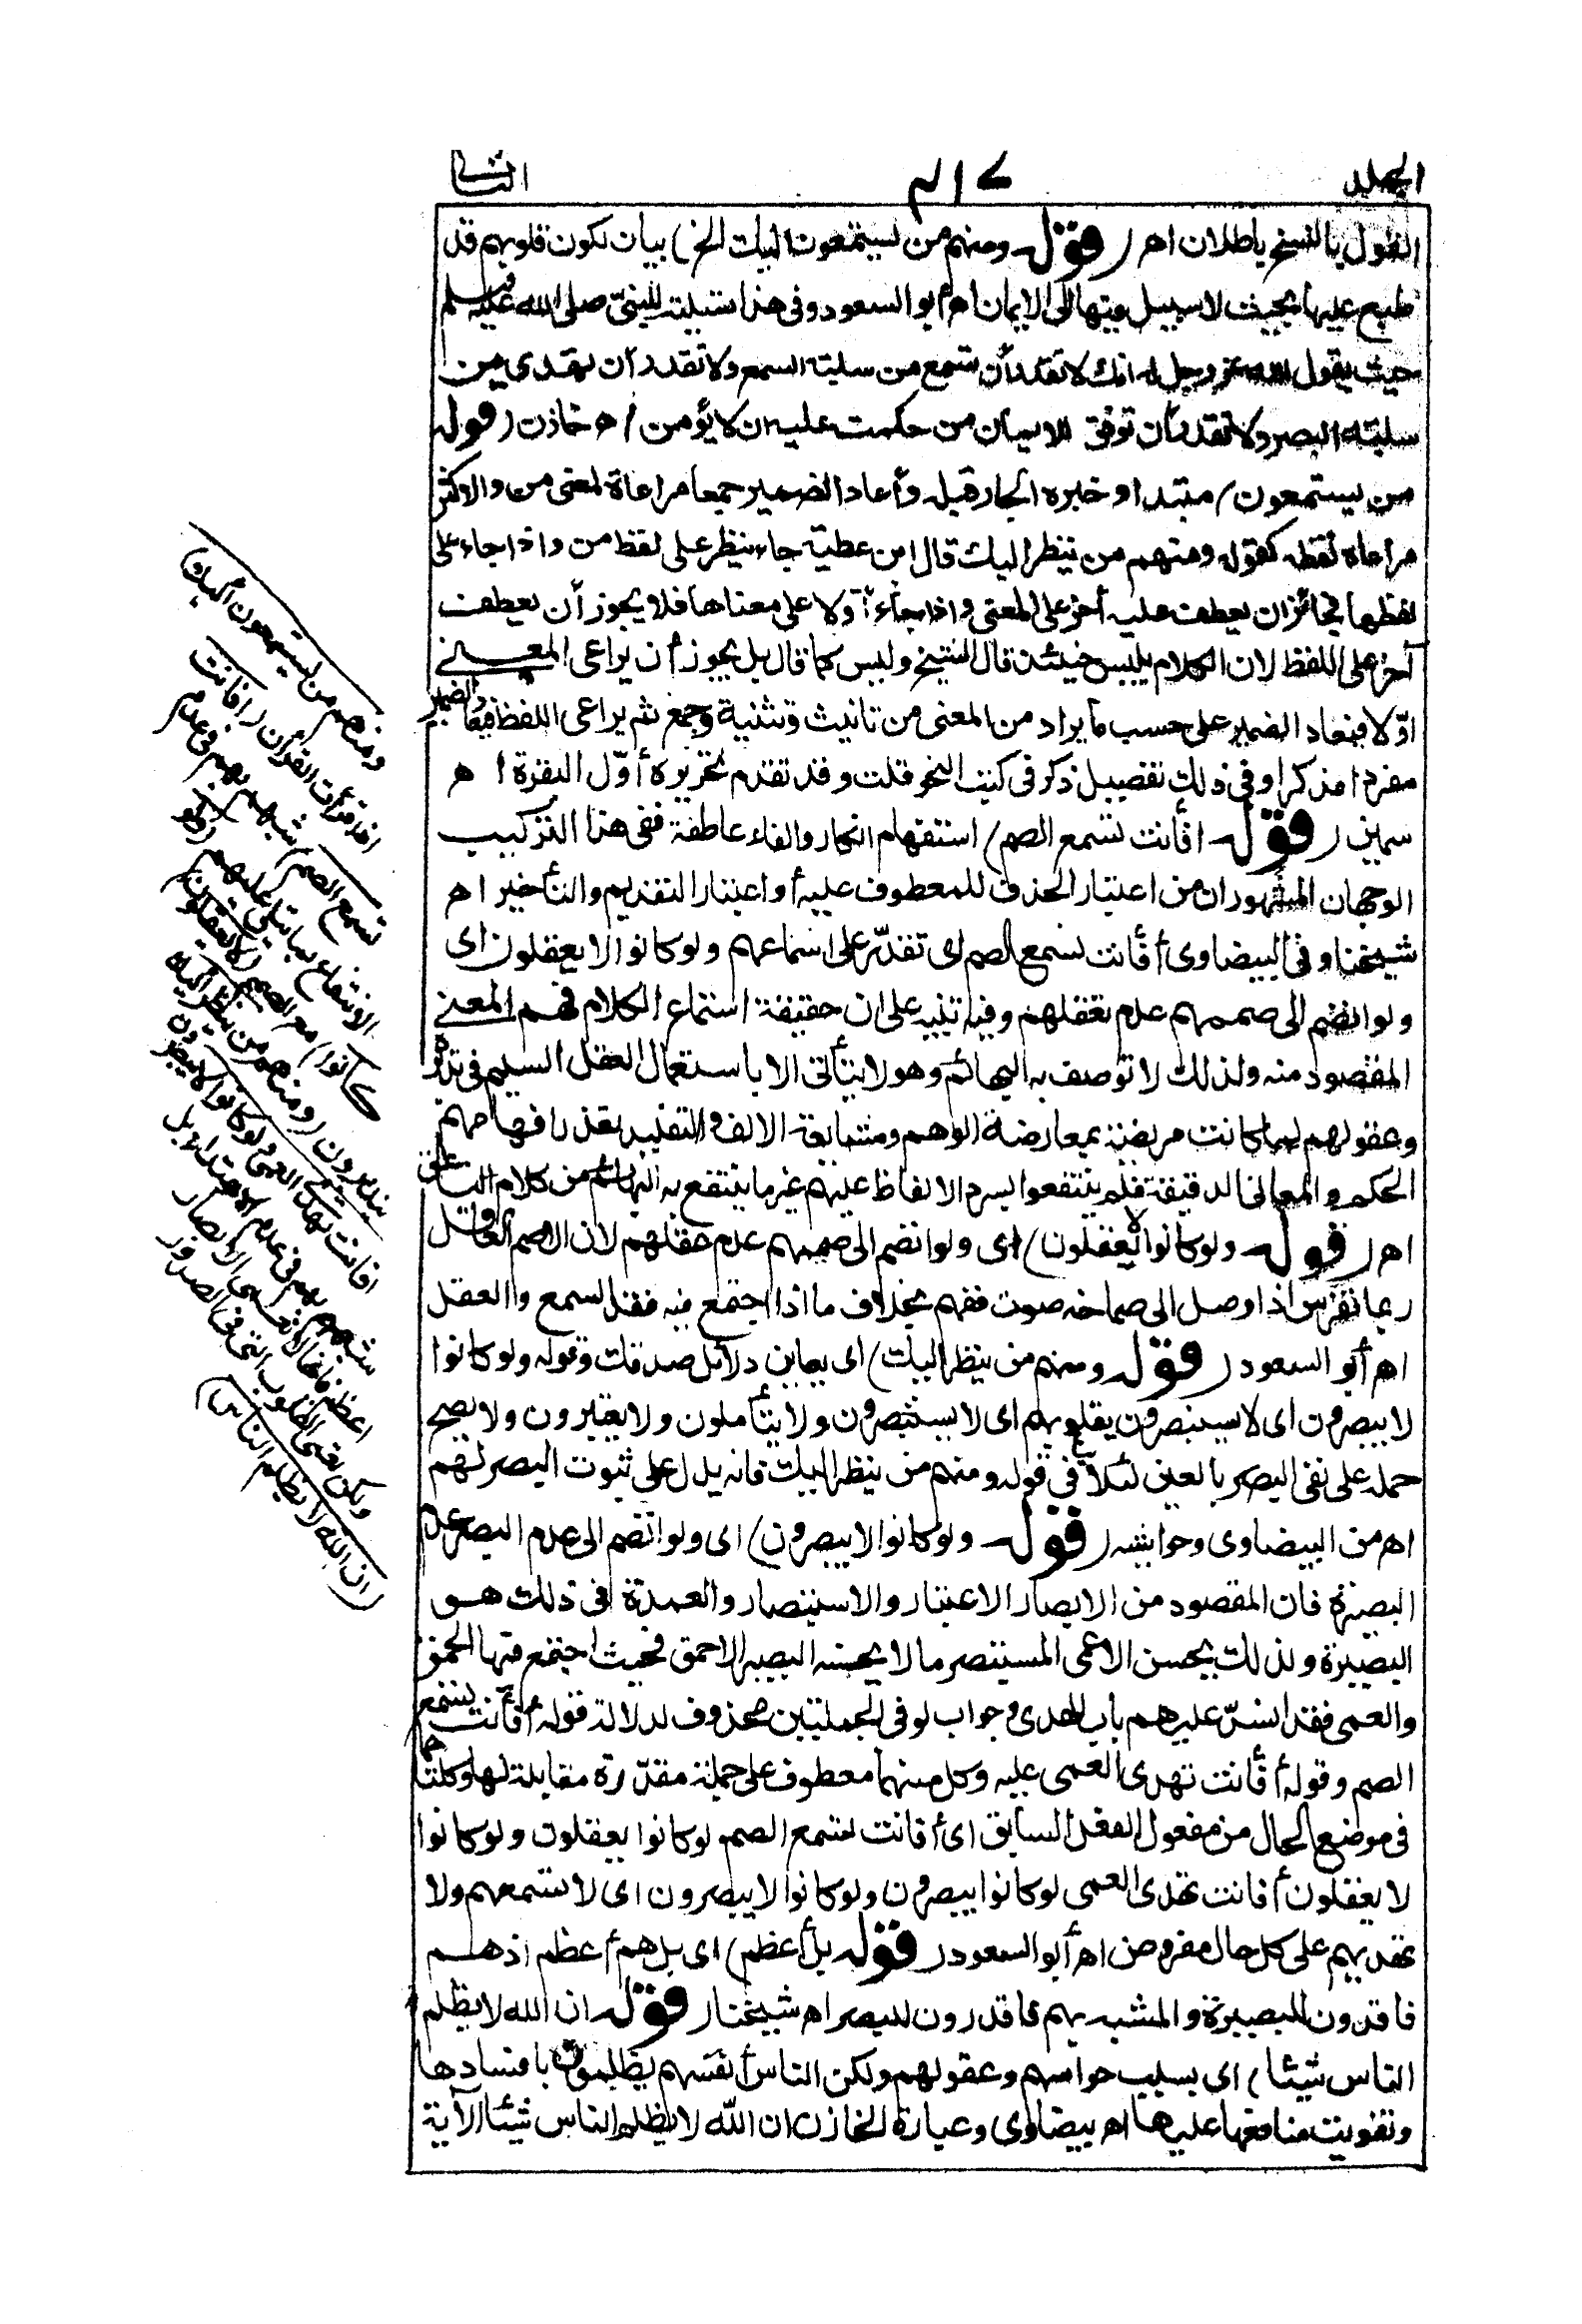 المجلد
الثاني
القول بالنسخ باطلان اهـ (قوله ومنهم من يستمعون اليك الخ) بيان لكون قلوبهم قد
طبع عليها بحيث لا سبيل منها الى الايمان اهـ أبو السعود وفي هذا تسلية للنبي صلى الله عليه وسلم
حيث يقول الله عز وجل له انك لا تقدر أن تسمع من سلبته السمع ولا تقدر أن تهدى من
سلبته البصر ولا تقدر أن توفق للايمان من حكمت عليه ان لا يؤمن اهـ خازن (قوله
من يستمعون) مبتدا وخبره الجار قبله وأعاد الضمير جمعا مراعاة لمعنى من والاكثر
مراعاة لفظه كقوله ومنهم من ينظر اليك قال ابن عطية جاء ينظر على لفظ من واذا جاء على
لفظها فجائز ان يعطف عليه آخر على المعنى واذا جاء أولا على معناها فلا يجوز أن يعطف
آخر على اللفظ لان الكلام يلبس حينئذ قال الشيخ وليس كما قال بل يجوز أن يراعى المعنى
أوّلا فيعاد الضمير على حسب ما يراد من المعنى من تانيث وتثنية وجمع ثم يراعى اللفظ فيعاد الضمير
مفردا مذكرا وفي ذلك تفصيل ذكر في كتب النحو قلت وقد تقدم تحريره أوّل البقرة اهـ
سمين (قوله أفأنت تسمع الصم) استفهام انكار والفاء عاطفة ففي هذا التركيب
الوجهان المشهوران من اعتبار الحذف للمعطوف عليه أو اعتبار التقديم والتأخير اهـ
شيخنا وفي البيضاوى أفأنت تسمع الصم اى تقدّر على اسماعهم ولو كانوا لا يعقلون اى
ولو انضم الى صممهم عدم تعقلهم وفيه تنبيه على ان حقيقة استماع الكلام فهم المعنى
المقصود منه ولذلك لا توصف به البهائم وهو لا يتأتى الا باستعمال العقل السليم في تدبره
وعقولهم لما كانت مريضة بمعارضة الوهم ومتابعة الالف والتقليد تعذر افهامهم
الحكم والمعانى الدقيقة فلم ينتفعوا بسرد الالفاظ عليهم غير ما ينتفع به البهائم من كلام الناعق
اهـ (قوله ولو كانوا لا يعقلون) اى ولو انضم الى صممهم عدم عقلهم لان الاصم العاقل
ربما تفرس اذا وصل الى صماخه صوت ففهم بخلاف ما اذا اجتمع فيه فقد السمع والعقل
اهـ أبو السعود (قوله ومنهم من ينظر اليك) اى يعاين دلائل صدقك وقوله ولو كانوا
لا يبصرون اى لا يستبصرون بقلوبهم اى لا يستبصرون ولا يتأملون ولا يعتبرون ولا يصح
حمله على نفى البصر بالعين لئلا في قوله ومنهم من ينظر اليك فانه يدل على ثبوت البصر لهم
اهـ من البيضاوى وحواشيه (قوله ولو كانوا لا يبصرون) اى ولو انضم الى عدم البصر عدم
البصيرة فان المقصود من الابصار الاعتبار والاستبصار والعمدة في ذلك هو
البصيرة ولذلك يحسن الاعمى المستبصر ما لا يحسنه البصير الاحمق فحيث اجتمع فيها الحمق
والعمى فقد انسدّ عليهم باب الهدى وجواب لو في الجملتين محذوف لدلالة قوله أفأنت تسمع
الصم وقوله أفأنت تهدى العمى عليه وكل منهما معطوف على جملة مقدّرة مقابلة لها وكلتاهما
في موضع الحال من مفعول الفعل السابق اى أفأنت تسمع الصم لو كانوا يعقلون ولو كانوا
لا يعقلون أفانت تهدى العمى لو كانوا يبصرون ولو كانوا لا يبصرون اى لا تسمعهم ولا
تهديهم على كل حال مفروض اهـ أبو السعود (قوله بل أعظم) اى بل هم أعظم اذ هم
فاقدون للبصيرة والمشبه بهم فاقدرون للبصر اهـ شيخنا (قوله ان الله لا يظلم
الناس شيئا) اى بسلب حواسهم وعقولهم ولكن الناس أنفسهم يظلمون بافسادها
وتفويت منافعها عليها اهـ بيضاوى وعبارة الخازن ان الله لا يظلم الناس شيئا الآية
ومنهم من يستمعون اليك)
اذا قرأت القرآن (افانت
تسمع الصم) شبههم بهم في عدم
الانتفاع بما يتلى عليهم (ولو
كانوا) مع الصمم (لا يعقلون)
يتدبرون (ومنهم من ينظر اليك
افانت تهدى العمى ولو كانوا لا يبصرون
شبههم بهم في عدم الاهتداء بل
اعظم فانها لا تعمى الابصار
ولكن تعمى القلوب التى في الصدور
(ان الله لا يظلم الناس)